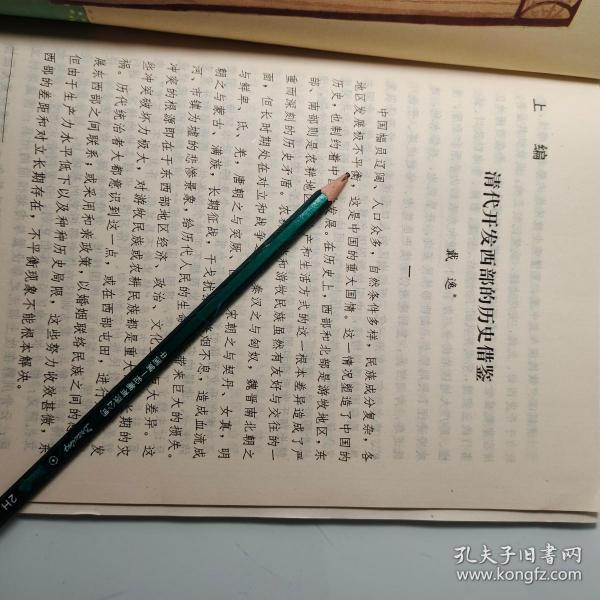 上编
清代开发西部的历史借鉴
戴逸*
一
中国幅员辽阔、人口众多,自然条件多样,民族成分复杂,各
地区发展极不平衡,这是中国的重大国情。这一情况塑造了中国的
历史,也制约着中 发展。在历史上,西部和北部是游牧地区,东
部、南部则是农耕地区 产和生活方式的这一根本差异造成了严
重而深刻的历史矛盾。农 和游牧民族虽然有友好与交往的一
面,但长时期处在对立和战争 秦汉之与匈奴,魏晋南北朝之
与鲜卑、氐、羌,唐朝之与突厥、 宋朝之与契丹、女真,明
朝之与蒙古、满族,长期征战,干戈扰 不息,造成血流成
河、市镇为墟的悲惨景象,给历代人民的生命 带来巨大的损失。
冲突的根源即在于东西部地区经济、政治、文化 巨大差异。这
些冲突破坏力极大,对游牧民族或农耕民族都是重大 长期的灾
祸。历代统治者大都意识到这一点,或在西部屯田,进 发
展东西部之间联系;或采用和亲政策,以婚姻联络民族之间的
但由于生产力水平低下以及种种历史局限,这些努力收效甚微,东
西部的差距和对立长期存在,不平衡现象不能根本解决。
中国第一铅笔股份有限公司
2H
孔夫子旧书网
www.kongfz.com